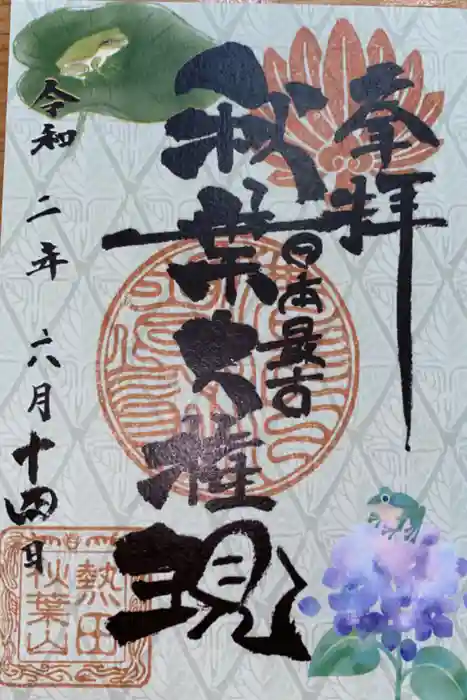 奉拝
日本最古
秋葉大権現
令和二年六月十四日
熱田
秋葉山